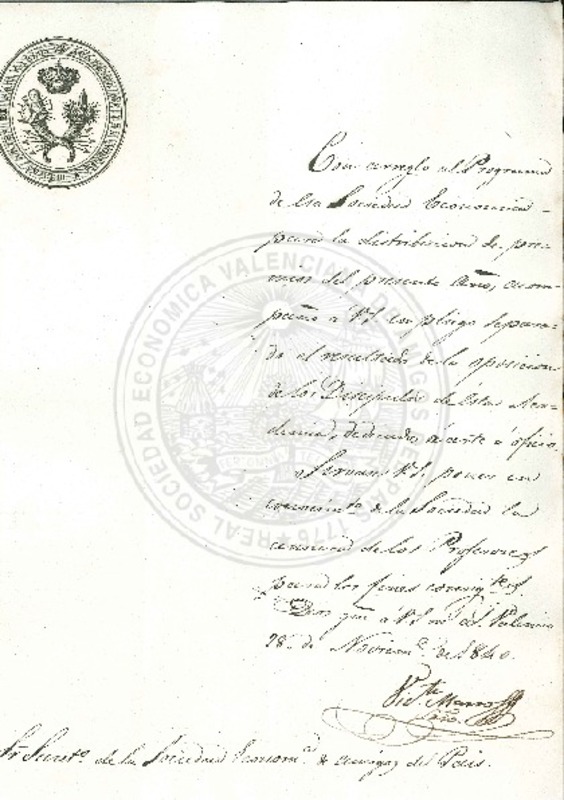 Con arreglo al Programa
de esa Sociedad Economica
para la distribucion de pre-
mios del presente Año, acom-
paño a V.S. en pliego separa-
do el resultado de la oposicion
de los Discipulos de esta Aca-
demia, dedicados, a arte u oficio.
Sirvase V.S. poner en
conocimto. de la Sociedad la
censura de los Profesores
para los fines consigtes.
Dios gue. a V.S. ms. as. Valencia
28 de Noviemе. de 1840.
Victe. Marzo
Srio.
Sr. Secreto. de la Sociedad Economca. de amigos del Pais.
REAL SOCIEDAD ECONOMICA VALENCIANA DE AMIGOS DEL PAIS 1776